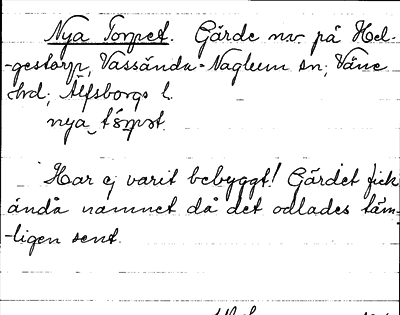 Nya Torpet. Gärde nv. på Hel-
-gestorp, Vassända-Naglum sn; Väne
hrd; Älfsborgs l.
nya tɔrpət
Har ej varit bebyggt! Gärdet fick
ändå namnet då det odlades täm-
-ligen sent.